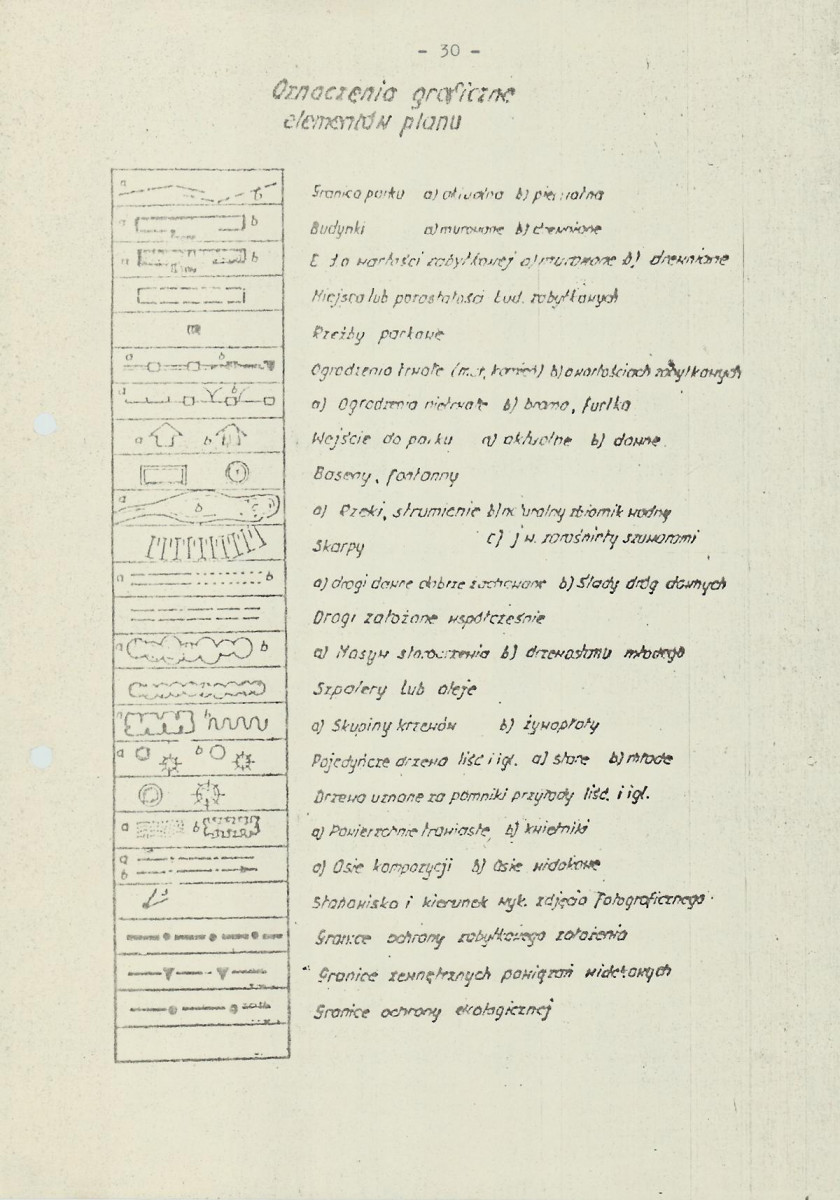 - 30 -
Oznaczenia graficzne
elementów planu
Granica parku a) aktualna b) pierwotna
Budynki a) murowane b) drewniane
o wartości zabytkowej a) murowane b) drewniane
Miejsca lub pozostałości bud. zabytkowych
Rzeźby parkowe
Ogrodzenia trwałe (mur, kamień) b) o wartościach zabytkowych
a) Ogrodzenia nietrwałe b) brama, furtka
Wejście do parku a) aktualne b) dawne
Baseny, fontanny
a) Rzeki, strumienie b) naturalny zbiornik wodny
c) j w. zarośnięty szuwarami
Skarpy
a) drogi dawne dobrze zachowane b) Ślady dróg dawnych
Drogi założone współcześnie
a) Masyw starodrzewia b) drzewostanu młodego
Szpalery lub aleje
a) Skupiny krzewów b) żywopłoty
Pojedyńcze drzewa liść i igl. a) stare b) młode
Drzewa uznane za pomniki przyrody liść. i igl.
a) Powierzchnie trawiaste b) kwietniki
a) Osie kompozycji b) Osie widokowe
Stanowisko i kierunek wyk. zdjęcia fotograficznego
Granice ochrony zabytkowego założenia
Granice zewnętrznych powiązań widokowych
Granice ochrony ekologicznej